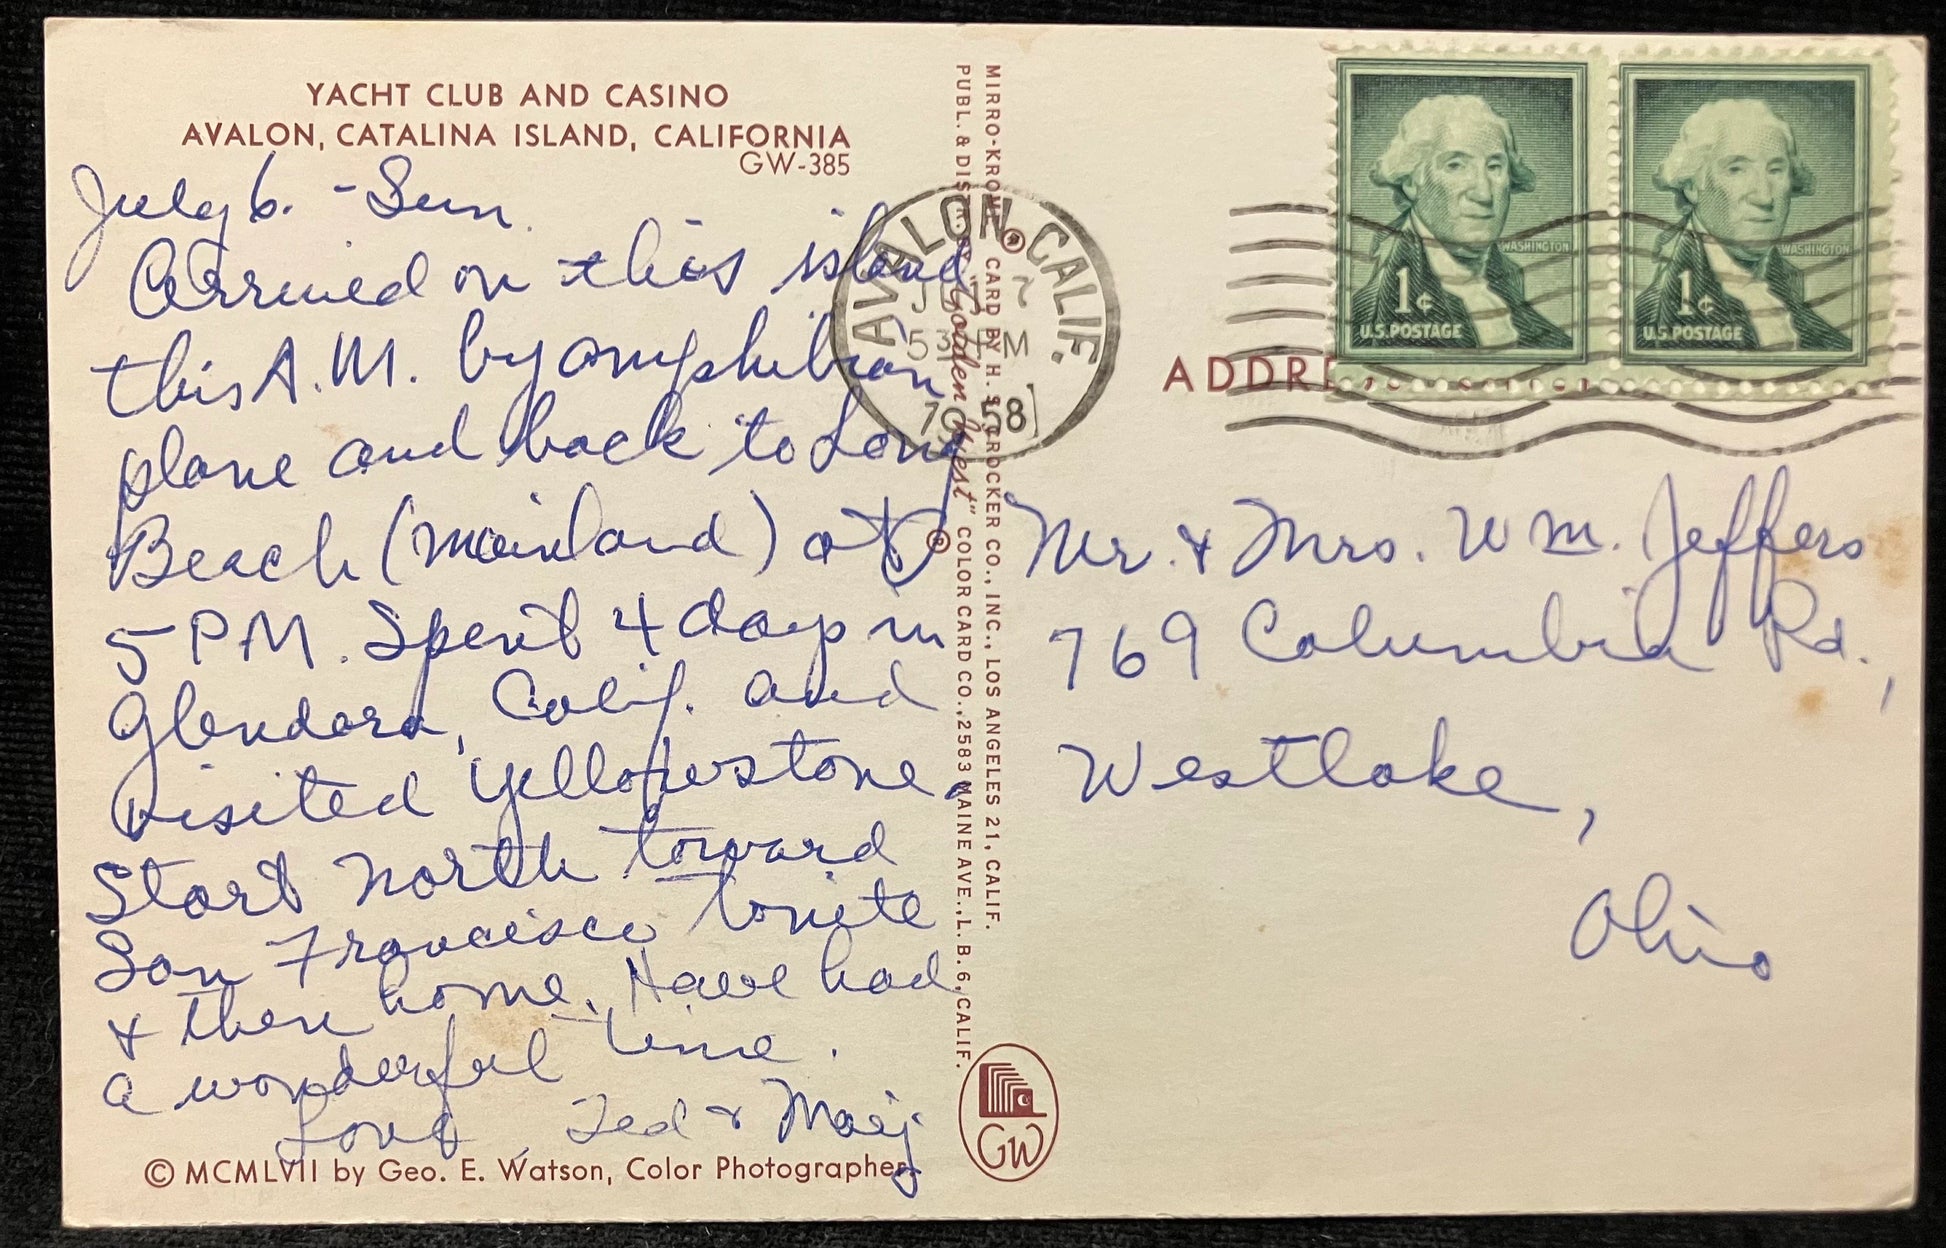 YACHT CLUB AND CASINO
AVALON, CATALINA ISLAND, CALIFORNIA
GW-385
July 6. - Sun
Arrived on this island
this A.M. by amphibian
plane and back to Long
Beach (mainland) at
5 P.M. Spent 4 days in
Glendora, Calif. and
visited Yellowstone.
Start north toward
San Francisco tonite
& then home. Have had
a wonderful time.
Love, Ted & Marj
© MCMLVII by Geo. E. Watson, Color Photographer.
MIRRO-KROME ® CARD BY H. S. CROCKER CO., INC., LOS ANGELES 21, CALIF.
PUBL. & DIST. "Golden West" ® COLOR CARD CO., 2583 MAINE AVE., L. B. 6, CALIF.
GW
AVALON, CALIF.
JUL 7
5 PM
1958
WASHINGTON
1¢
U.S. POSTAGE
WASHINGTON
1¢
U.S. POSTAGE
Mr. & Mrs. Wm. Jeffers
769 Columbia Rd.,
Westlake,
Ohio